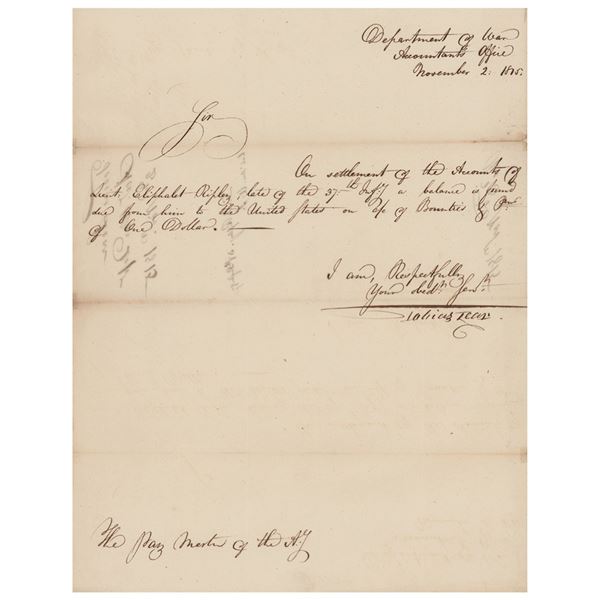 Department of War
Accountants Office
November 2. 1815.
Sir
On settlement of the Accounts of
Lieut. Eliphalet Ripley late of the 37th Infy a balance is found
due from him to the United States on a/c of Bounties & Pms
of One Dollar.
I am, Respectfully
Your obedt. Servt.
Tobias Lear.
The Pay Master of the Ay